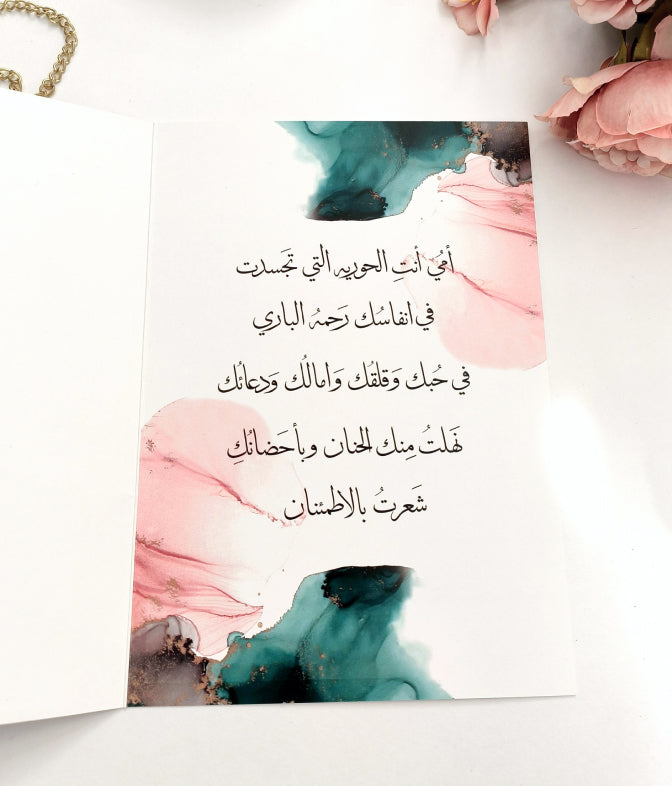 أميُ أنتِ الحوريه التي تجَسدت
في انفاسُك رَحمهُ الباري
في حُبك وَقلقُك وَامالُك وَدعائُك
نَهلتُ مِنك الحنان وبأحَضانُكِ
شَعرتُ بالاطمئنان